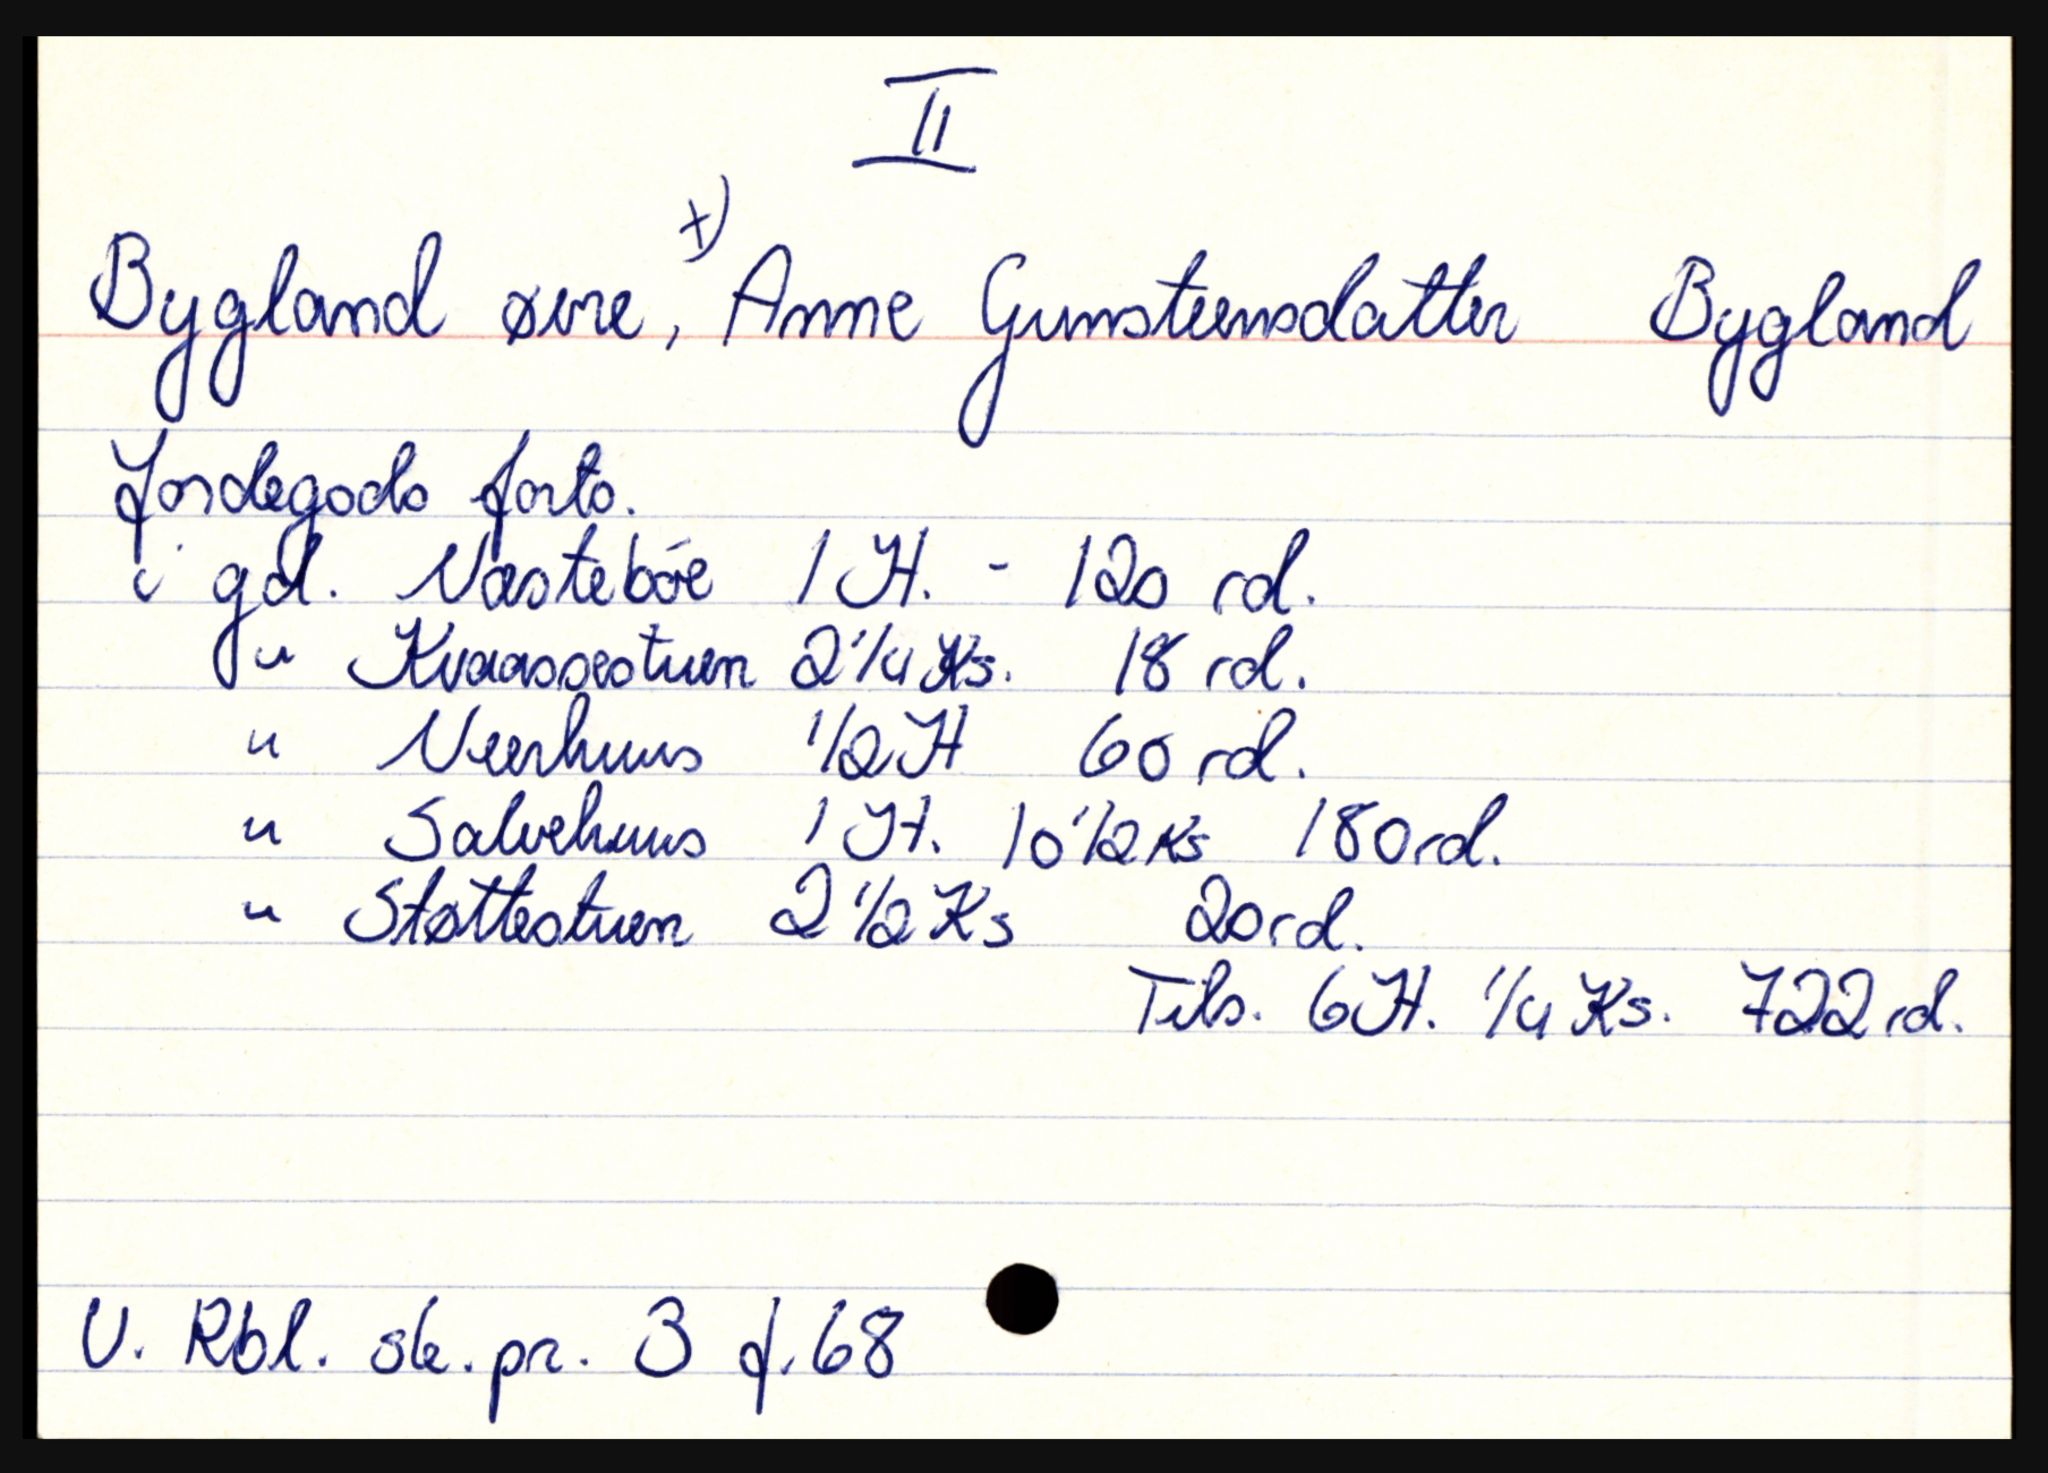 II
Bygland øvre, x) Anne Gunsteensdatter Bygland
Jordegods forts.
i gd. Næstebøe 1 H. - 120 rd.
" Kvaassestuen 2 1/4 Ks. 18 rd.
" Neerhuus 1/2 H 60 rd.
" Salvehuus 1 H. 10 1/2 Ks 180 rd.
" Støttestuen 2 1/2 Ks 20 rd.
Tils. 6 H. 1/4 Ks. 722 rd.
V. Rbl. sk. pr. 3 f. 68